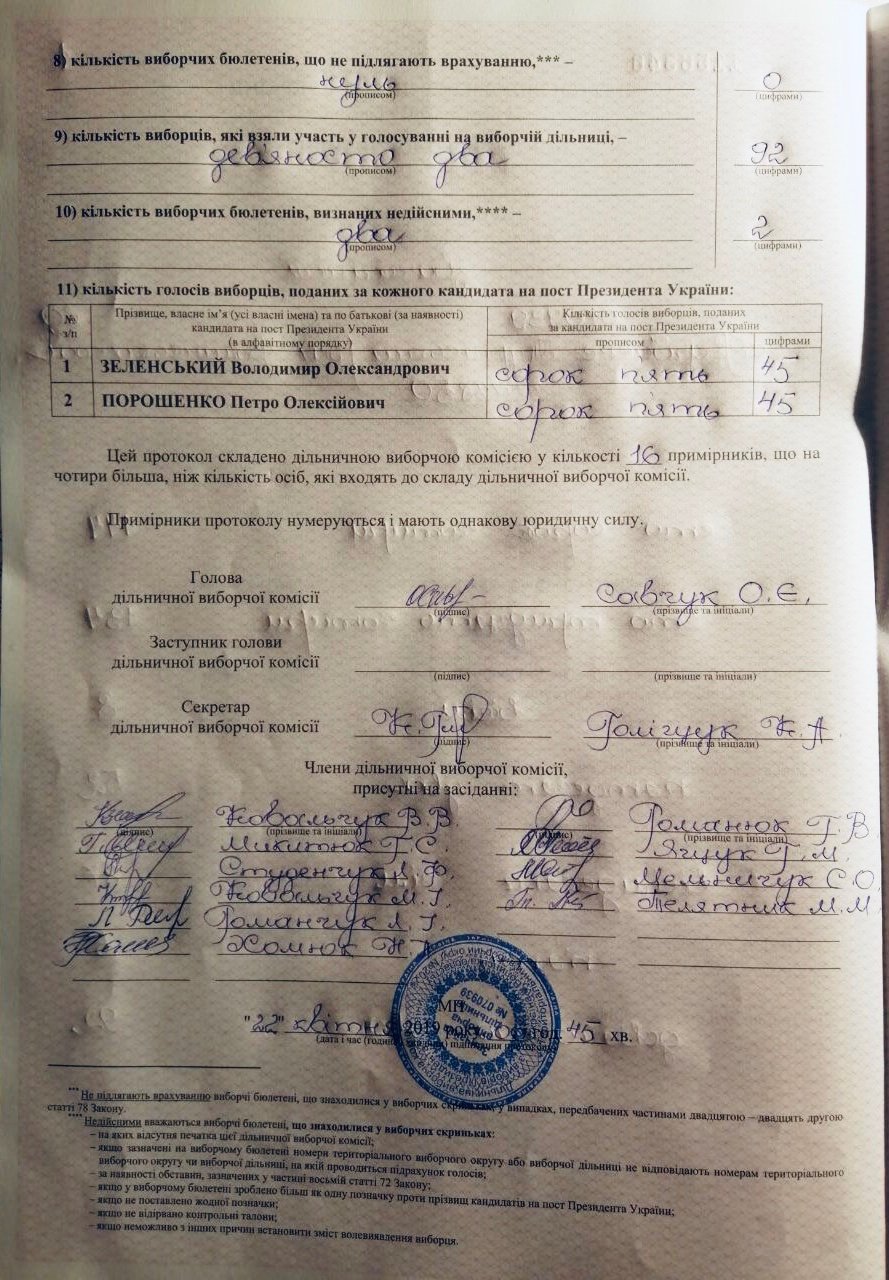 8) кількість виборчих бюлетенів, що не підлягають врахуванню,*** –
нуль
0
(прописом)
(цифрами)
9) кількість виборців, які взяли участь у голосуванні на виборчій дільниці, –
дев'яносто два
92
(прописом)
(цифрами)
10) кількість виборчих бюлетенів, визнаних недійсними,**** –
два
2
(прописом)
(цифрами)
11) кількість голосів виборців, поданих за кожного кандидата на пост Президента України:
№ з/п
Прізвище, власне ім’я (усі власні імена) та по батькові (за наявності)
кандидата на пост Президента України
(в алфавітному порядку)
Кількість голосів виборців, поданих
за кандидата на пост Президента України
прописом
цифрами
1 ЗЕЛЕНСЬКИЙ Володимир Олександрович сорок п'ять 45
2 ПОРОШЕНКО Петро Олексійович сорок п'ять 45
Цей протокол складено дільничною виборчою комісією у кількості 16 примірників, що на
чотири більша, ніж кількість осіб, які входять до складу дільничної виборчої комісії.
Примірники протоколу нумеруються і мають однакову юридичну силу.
Голова
дільничної виборчої комісії Савчук О.Є.
(підпис) (прізвище та ініціали)
Заступник голови
дільничної виборчої комісії
(підпис) (прізвище та ініціали)
Секретар
дільничної виборчої комісії Поліщук Н.А.
(підпис) (прізвище та ініціали)
Члени дільничної виборчої комісії,
присутні на засіданні:
Ковальчук В.В. Романюк Г.В.
(підпис) (прізвище та ініціали) (підпис) (прізвище та ініціали)
Микитюк Г.С. Ящук Г.М.
Студенчук Л.Ф. Мельничук С.О.
Ковальчук М.І. Телятник М.М.
Романчук Л.І.
Хомюк
МП
№ 070939
"22" квітня 2019 року год. 45 хв.
(дата і час (години, хвилини) підписання протоколу)
*** Не підлягають врахуванню виборчі бюлетені, що знаходилися у виборчих скриньках, у випадках, передбачених частинами двадцятою – двадцять другою
статті 78 Закону.
**** Недійсними вважаються виборчі бюлетені, що знаходилися у виборчих скриньках:
– на яких відсутня печатка цієї дільничної виборчої комісії;
– якщо зазначені на виборчому бюлетені номери територіального виборчого округу або виборчої дільниці не відповідають номерам територіального
виборчого округу чи виборчої дільниці, на якій проводиться підрахунок голосів;
– за наявності обставин, зазначених у частині восьмій статті 72 Закону;
– якщо у виборчому бюлетені зроблено більш як одну позначку проти прізвищ кандидатів на пост Президента України;
– якщо не поставлено жодної позначки;
– якщо не відірвано контрольні талони;
– якщо неможливо з інших причин встановити зміст волевиявлення виборця.